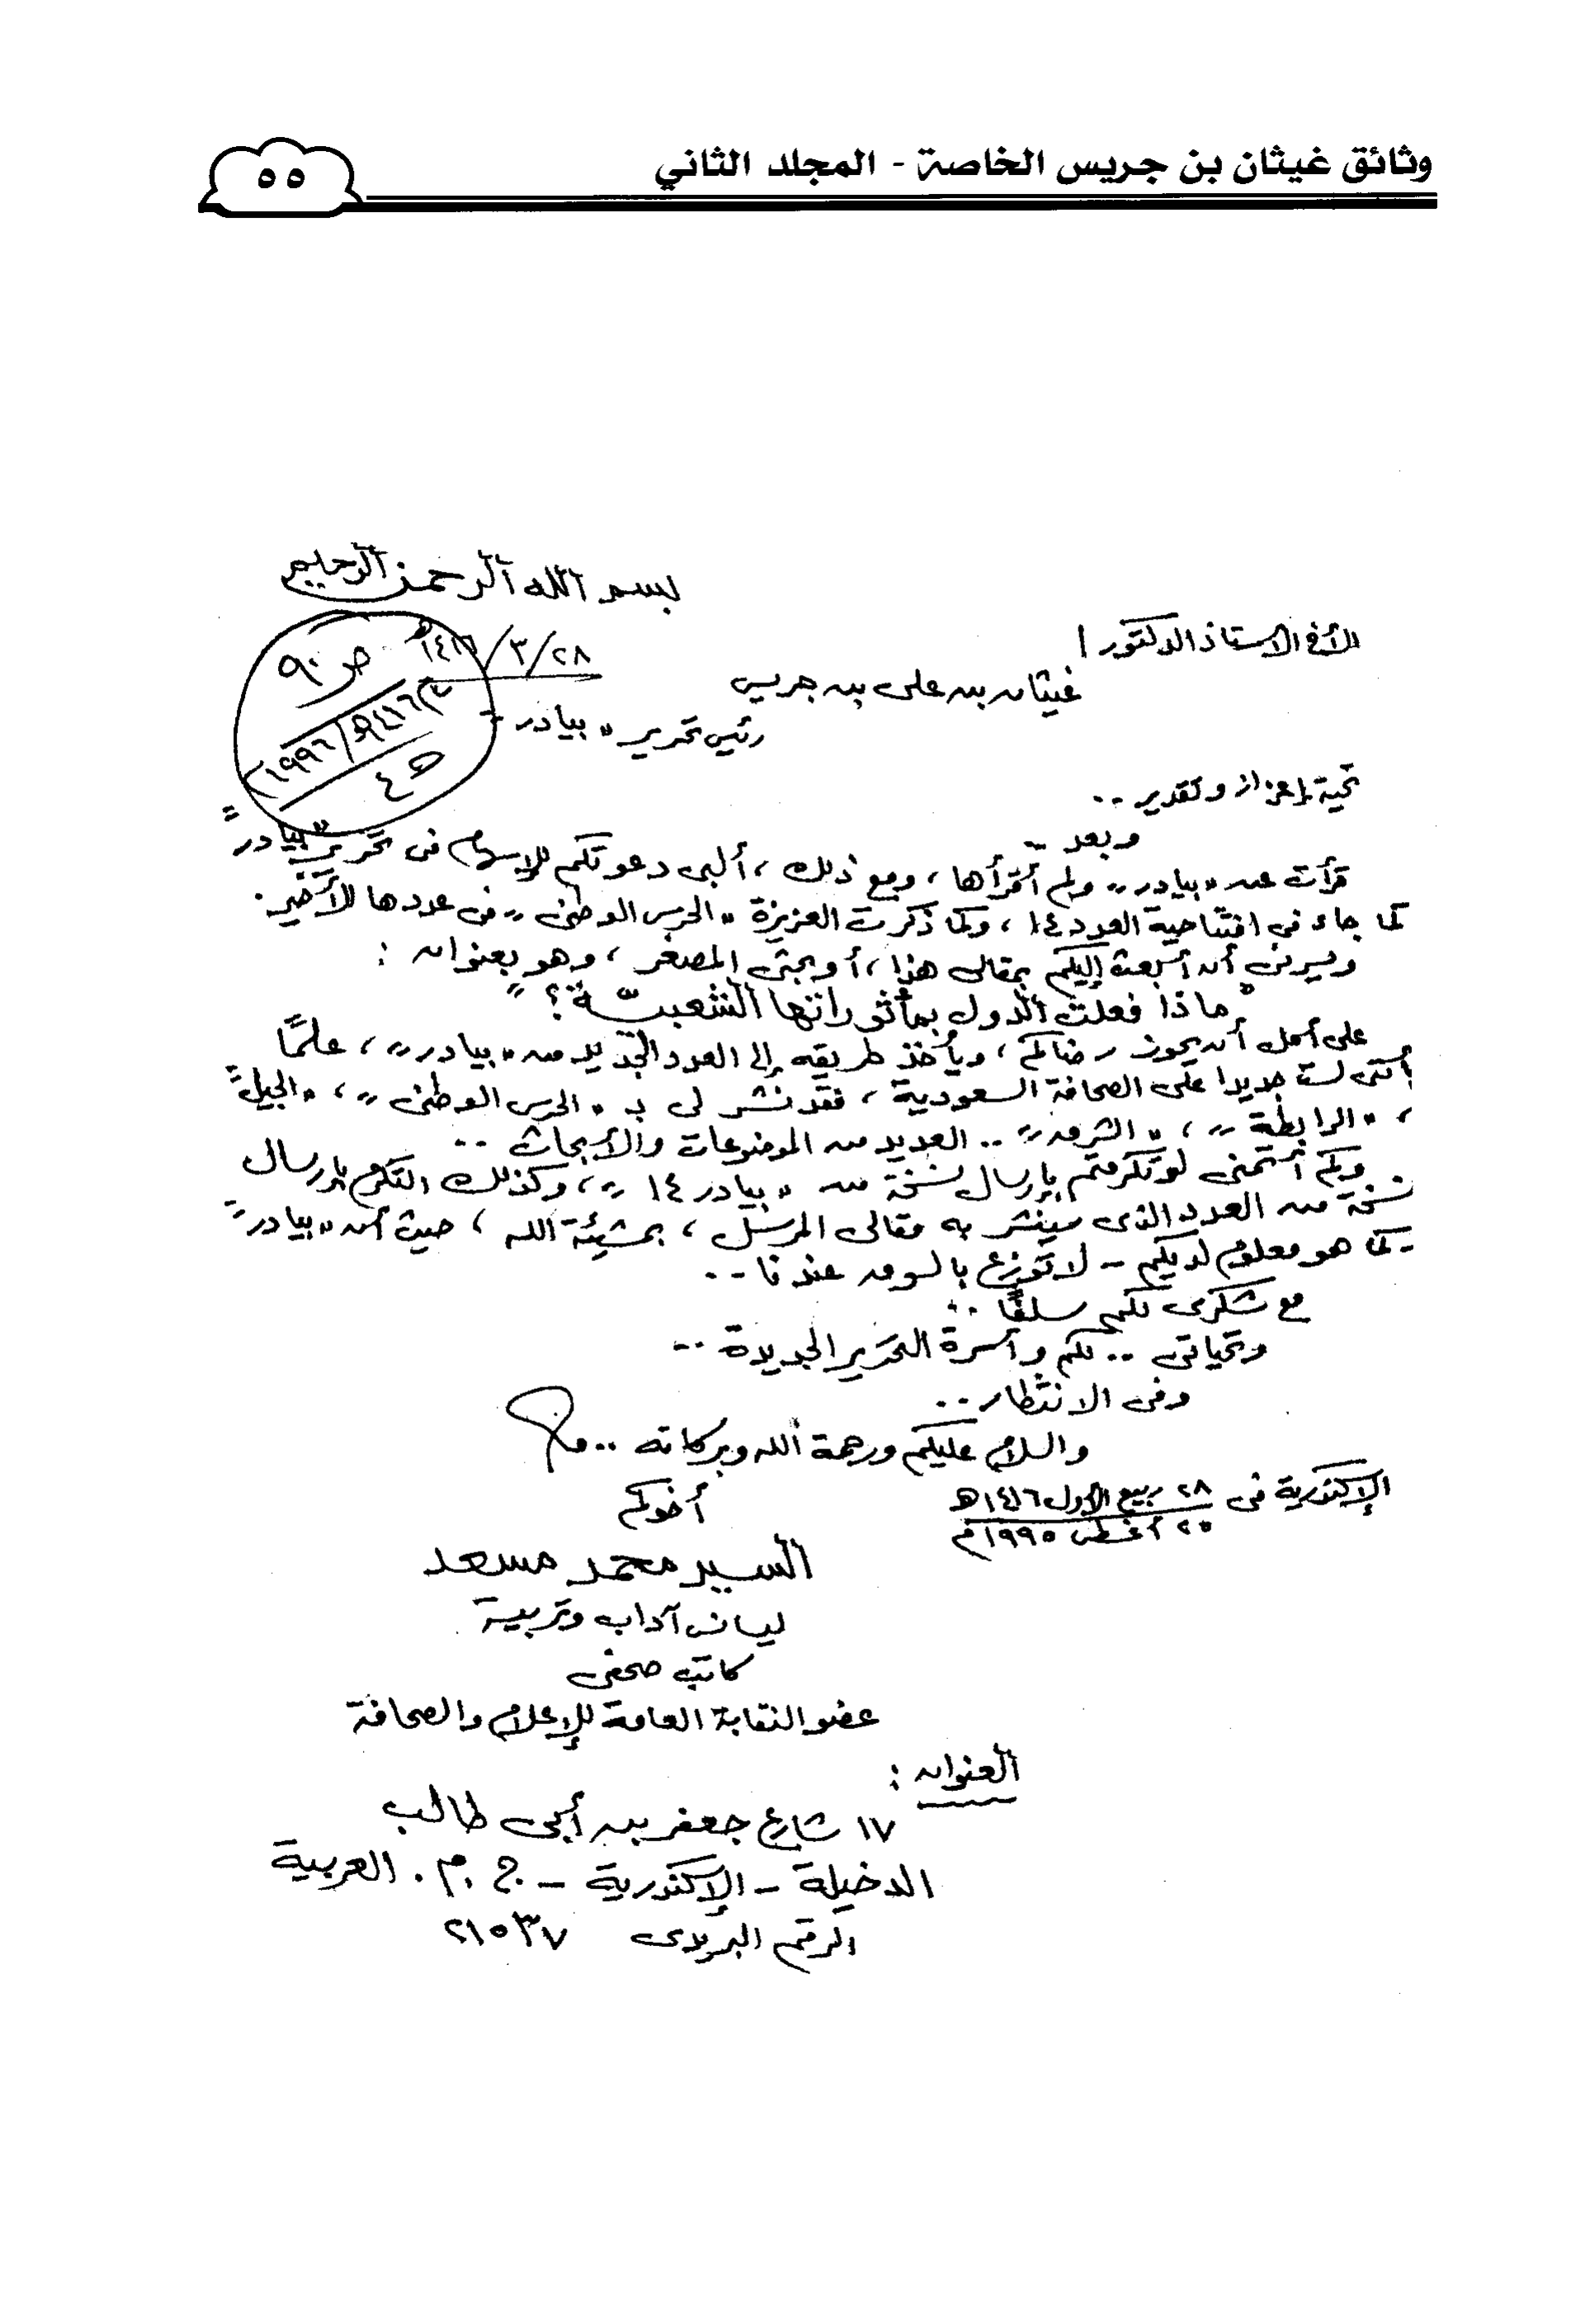 وثائق غيثان بن جريس الخاصة - المجلد الثاني
٥٥
بسم الله الرحمن الرحيم
٢٨/٣/١٤١٦هـ
الأخ الأستاذ الدكتور/
غيثان بن على بن جريس
رئيس تحرير "بيادر"
ص ٩٠
تحية إعزاز وتقدير ..
وبعد ..
قرأت عن "بيادر" ولم أقرأها، ومع ذلك، ألبى دعوتكم للإسهام فى تحرير "بيادر"
كما جاء فى افتتاحية العدد ١٤، وكما ذكرت العزيزة "الحرس الوطنى" فى عددها الأخير.
ويسرنى أن أبعث إليكم بمقالى هذا، أو بحثى المصغر، وهو بعنوان :
"ماذا فعلت الدول بمأثوراتها الشعبيّة؟"
على أمل أن يحوز رضاكم، ويأخذ طريقه إلى العدد الجديد من "بيادر"، علمًا
بأننى لست جديدا على الصحافة السعودية، فقد نشر لى بـ "الحرس الوطنى"، "الجيل"
، "الرابطة"، "الشرق" .. العديد من الموضوعات والأبحاث ..
ولكم أتمنى لو تكرمتم بإرسال نسخة من "بيادر ١٤"، وكذلك التكرم بإرسال
نسخة من العدد الذى سينشر به مقالى المرسل، بمشيئة الله، حيث أن "بيادر"
- كما هو معلوم لديكم - لا توزع بالسوق عندنا ..
مع شكرى لكم سلفًا ..
وتحياتى .. لكم وأسرة التحرير الجديدة ..
وفى الانتظار ..
والسلام عليكم ورحمة الله وبركاته ..
الإسكندرية فى ٢٨ ربيع الأول ١٤١٦هـ
٢٥ أغسطس ١٩٩٥م
أخوكم
السيد محمد مسعد
ليسانس آداب وتربية
كاتب صحفى
عضو النقابة العامة للإعلام والصحافة
العنوان :
١٧ شارع جعفر بن أبى طالب
الدخيلة - الإسكندرية - ج. م. العربية
الرقم البريدى ٢١٥٣٧